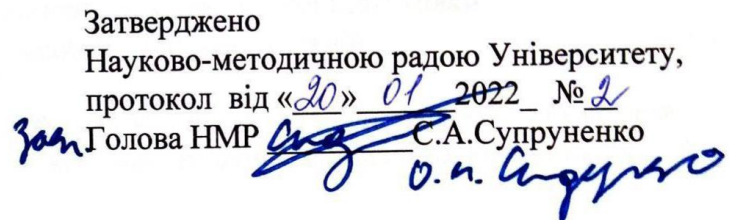 Затверджено
Науково-методичною радою Університету,
протокол від «20» 01 2022_ № 2
Голова НМР ________С.А.Супруненко